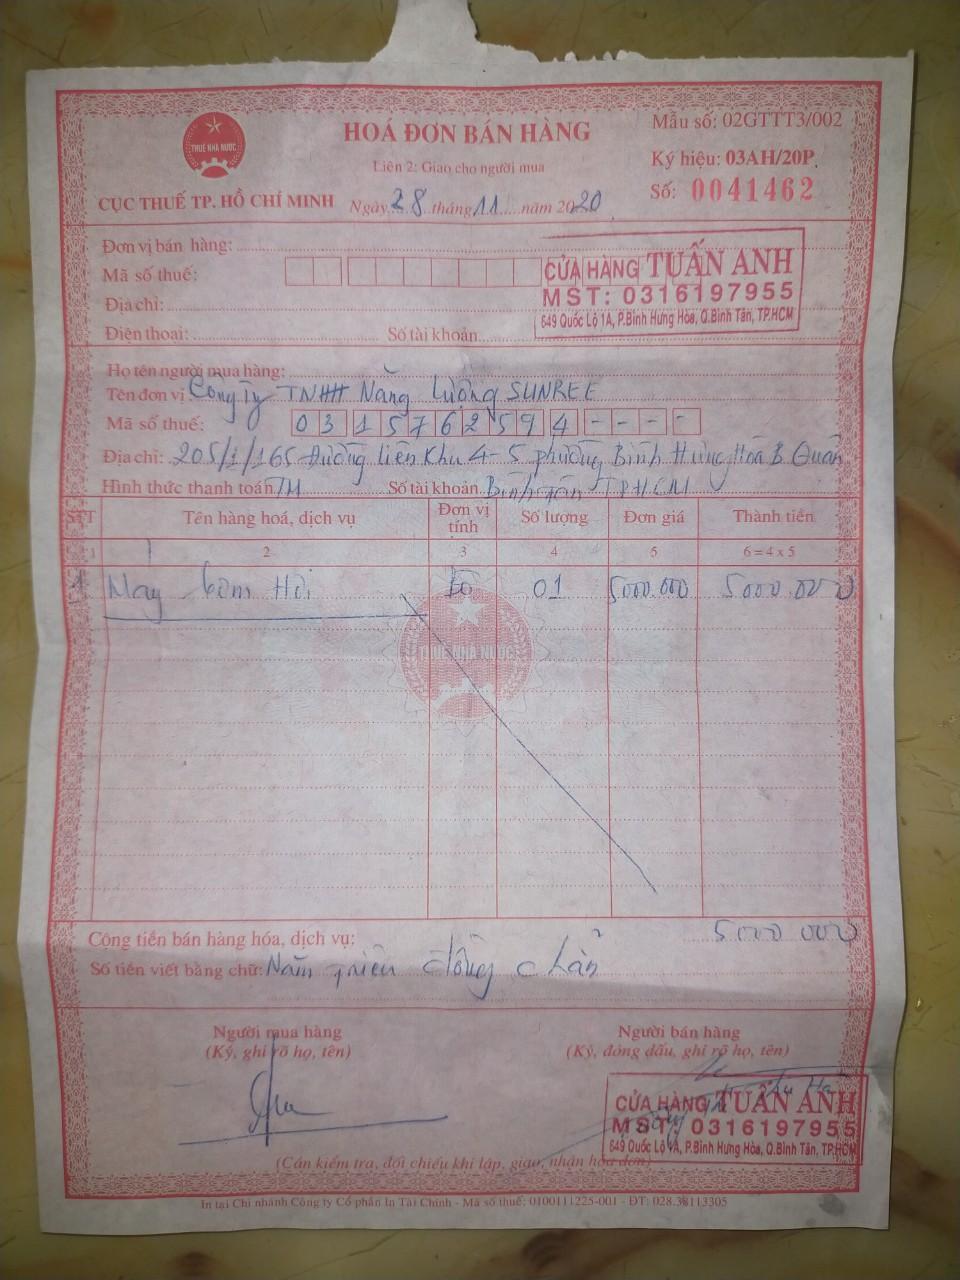 HOÁ ĐƠN BÁN HÀNG
Mẫu số: 02GTTT3/002
Liên 2: Giao cho người mua
Ký hiệu: 03AH/20P
THUẾ NHÀ NƯỚC
CỤC THUẾ TP. HỒ CHÍ MINH
Ngày 28 tháng 11 năm 2020
Số: 0041462
Đơn vị bán hàng:
Mã số thuế:
Địa chỉ:
Điện thoại: Số tài khoản
CỬA HÀNG TUẤN ANH
MST: 0316197955
649 Quốc Lộ 1A, P.Bình Hưng Hòa, Q.Bình Tân, TP.HCM
Họ tên người mua hàng:
Tên đơn vị Công Ty TNHH Năng Lường SUNREE
Mã số thuế: 0315762594----
Địa chỉ: 205/1/165 Đường liên Khu 4-5 phường Bình Hưng Hoà B Quân
Hình thức thanh toán TM Số tài khoản Bình Tân TPHCM
STT Tên hàng hoá, dịch vụ Đơn vị tính Số lượng Đơn giá Thành tiền
1 2 3 4 5 6 = 4 x 5
1 May bơm Hơi 01 5000.000 5000.000
THUẾ NHÀ NƯỚC
Cộng tiền bán hàng hóa, dịch vụ: 5000 000
Số tiền viết bằng chữ: Năm triệu đồng chẵn
Người mua hàng Người bán hàng
(Ký, ghi rõ họ, tên) (Ký, đóng dấu, ghi rõ họ, tên)
CỬA HÀNG TUẤN ANH
MST: 0316197955
649 Quốc Lộ 1A, P.Bình Hưng Hòa, Q.Bình Tân, TP.HCM
(Cần kiểm tra, đối chiếu khi lập, giao, nhận hóa đơn)
In tại Chi nhánh Công ty Cổ phần In Tài Chính - Mã số thuế: 0100111225-001 - ĐT: 028.38113305